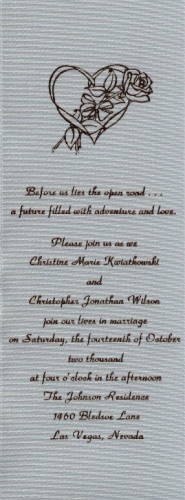 Before us lies the open road . . .
a future filled with adventure and love.
Please join us as we
Christine Marie Kwiatkowski
and
Christopher Jonathan Wilson
join our lives in marriage
on Saturday, the fourteenth of October
two thousand
at four o'clock in the afternoon
The Johnson Residence
1460 Bledsoe Lane
Las Vegas, Nevada